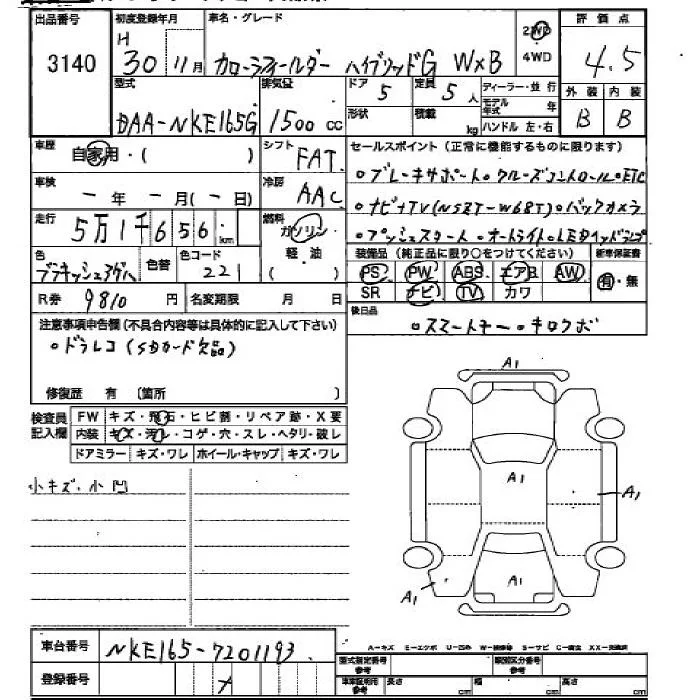 出品番号 初度登録年月 車名・グレード 評価点
3140 H 30 11月 カローラフィールダー ハイブリッドG W×B 2WD 4WD 4.5
型式 排気量 ドア 5 定員 5人 ディーラー・並行 外装 内装
DAA-NKE165G 1500cc 形状 積載 kg モデル年式 年 ハンドル 左・右 B B
車歴 自家用・( ) シフト FAT セールスポイント (正常に機能するものに限ります)
車検 ー年 ー月(ー日) 冷房 AAC ○ブレーキサポート○クルーズコントロール○ETC
走行 5万1千656km 燃料 ガソリン 軽・油 ( ) ○ナビ+TV(NSZT-W68T)○バックカメラ
○プッシュスタート○オートライト○LEDヘッドランプ
色 ブラキッシュアゲハ 色替 色コード 221 装備品 (純正品に限り○をつけてください) 新車保証書
PS PW ABS エアB AW 有・無
R券 9810 円 名変期限 月 日 SR ナビ TV カワ
注意事項申告欄 (不具合内容等は具体的に記入して下さい) 後日品 ○スマートキー○キロクボ
○ドラレコ (SDカード欠品)
修復歴 有 〔箇所 〕
検査員記入欄 FW キズ・飛石・ヒビ割・リペア跡・X要
内装 キズ・汚レ・コゲ・穴・スレ・ヘタリ・破レ
ドアミラー キズ・ワレ ホイール・キャップ キズ・ワレ
小キズ・小凹
A1
A1
A1
A1
A1
車台番号 NKE165-7201193
A-キズ E-エクボ U-凹み W-補修巻 S-サビ C-腐食 XX-交換済
登録番号 型式指定番号 参考 類別区分番号 参考
車庫証明用 参考 長さ cm 幅 cm 高さ cm